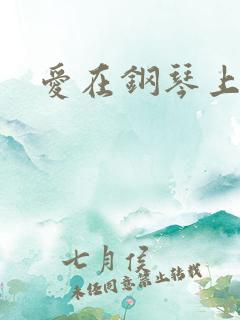 愛在鋼琴上
七月侯
未經同意禁止轉載